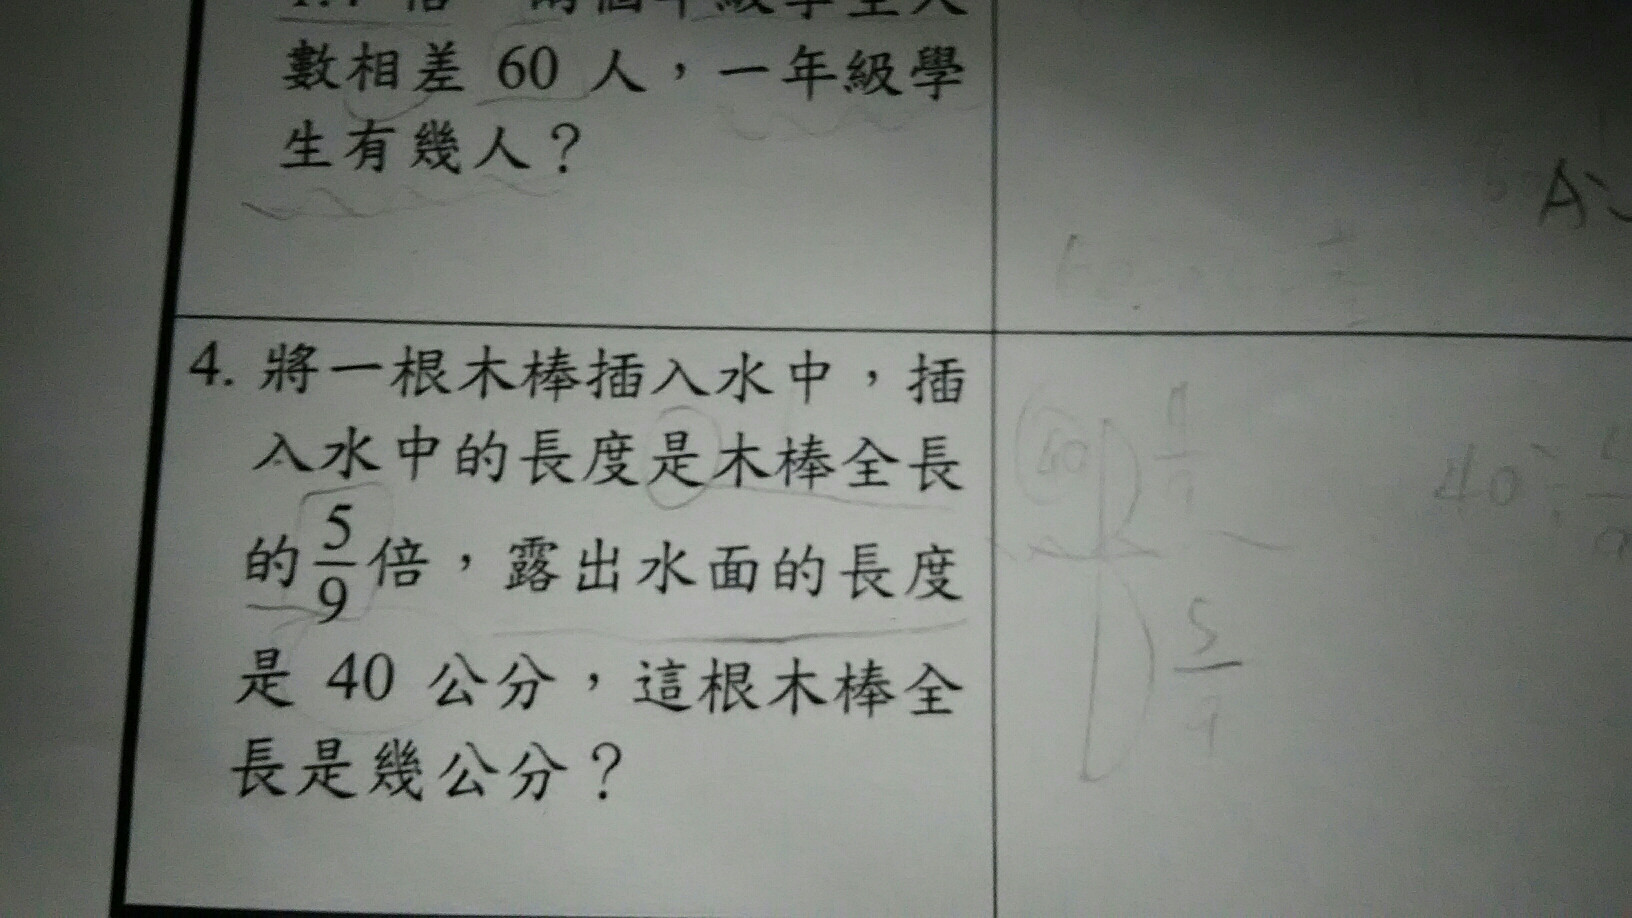 數相差 60 人，一年級學
生有幾人？
4. 將一根木棒插入水中，插
入水中的長度是木棒全長
的5/9倍，露出水面的長度
是 40 公分，這根木棒全
長是幾公分？
40
5/9
40÷
A: